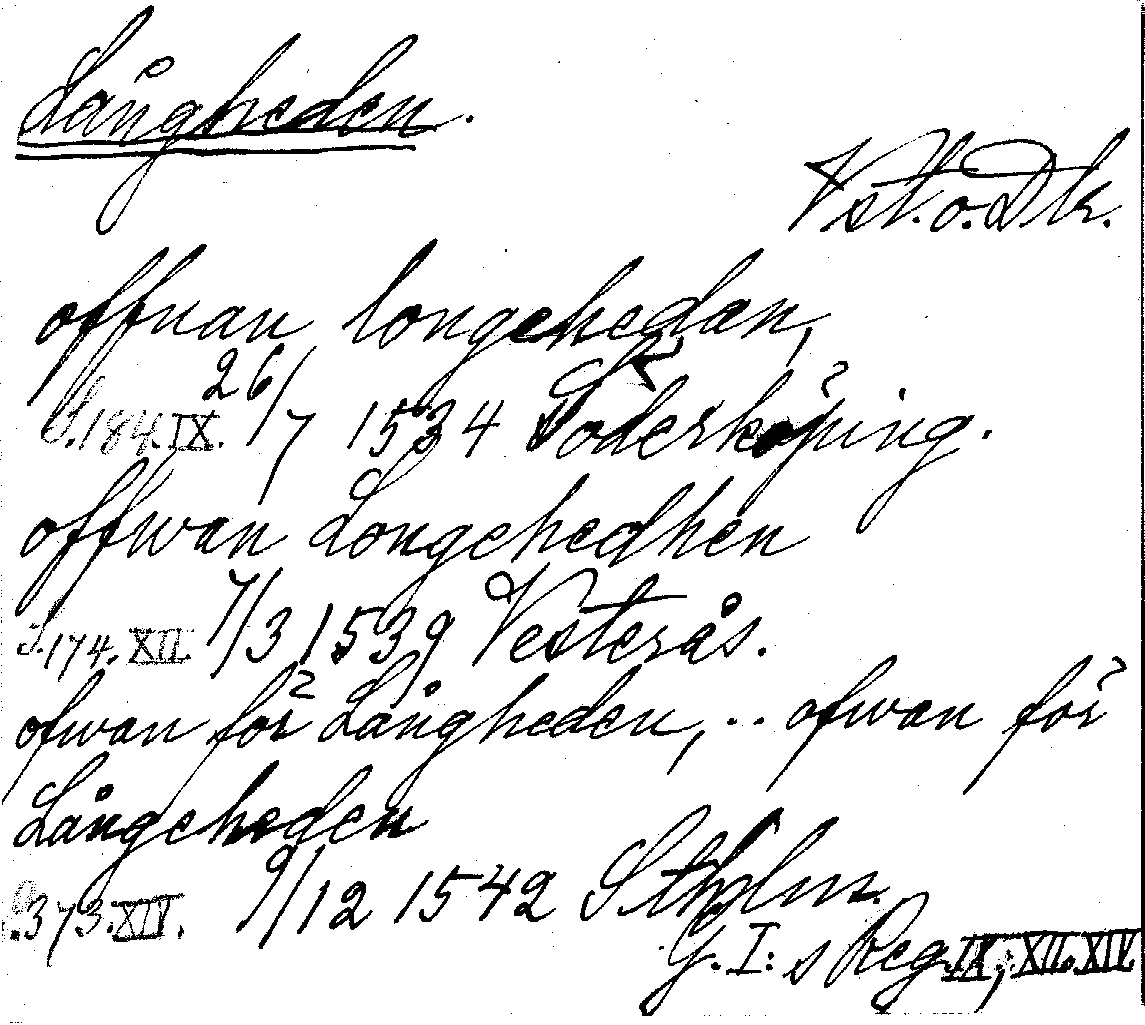 Långheden.
Vstl. o. Dlr.
offnan longehedan,
S. 184. IX. 26/7 1534 Söderköping.
offwan Longehedhen
S. 174. XII. 7/3 1539 Vesterås.
ofwan för Långheden, .. ofwan för
Långeheden
S. 373. XIV. 9/12 1542 Sthlm.
G. I:s Reg. IX, XII. XIV.